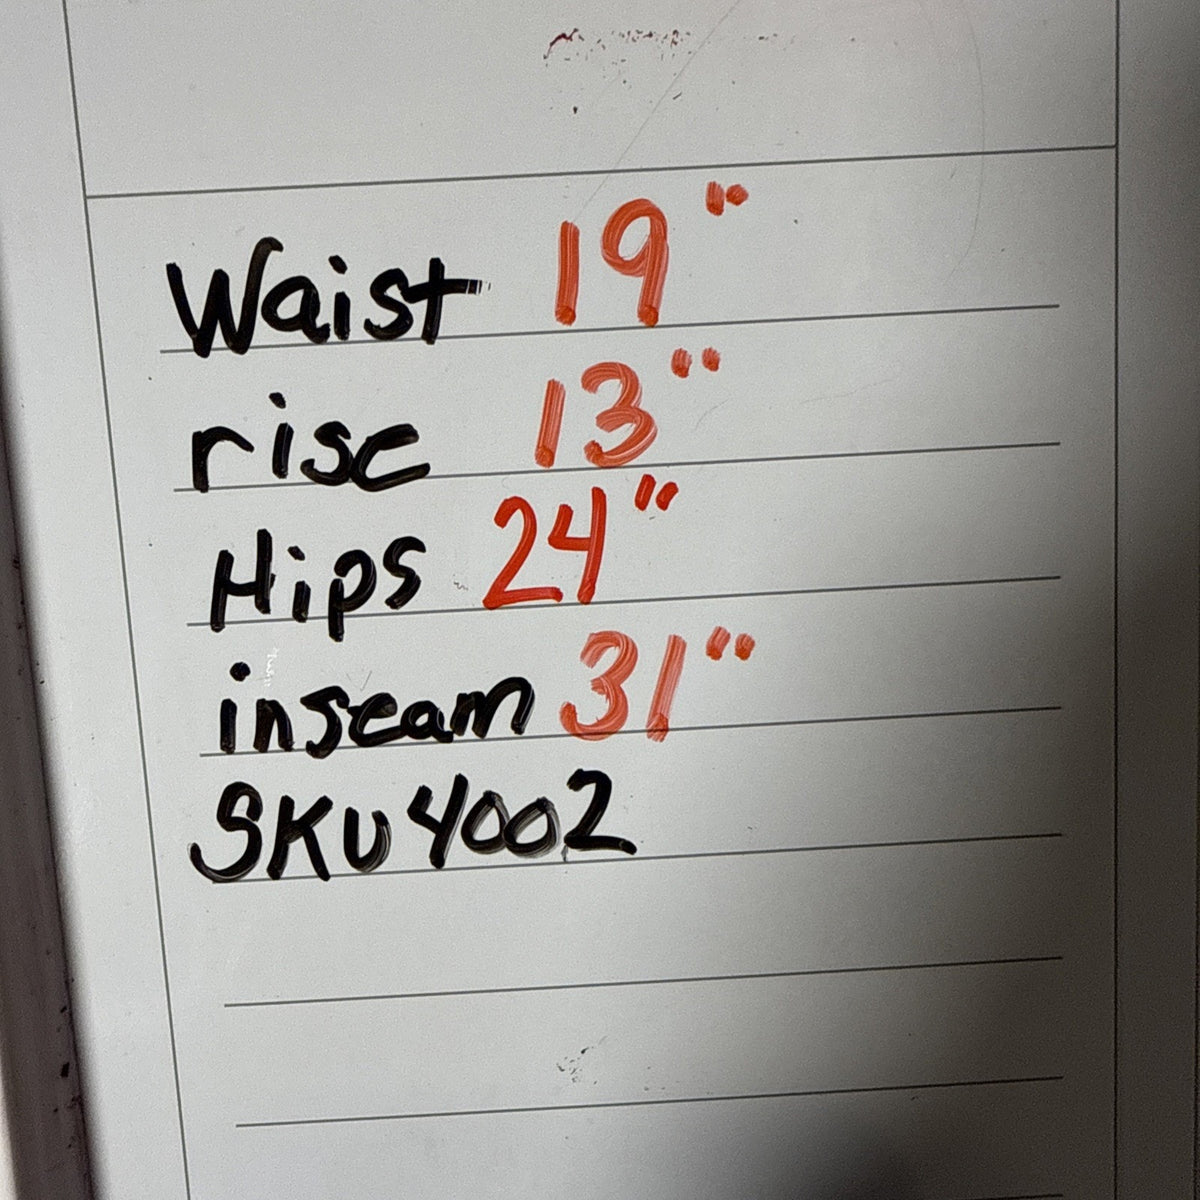 Waist 19"
rise 13"
Hips 24"
inseam 31"
SKU 4002